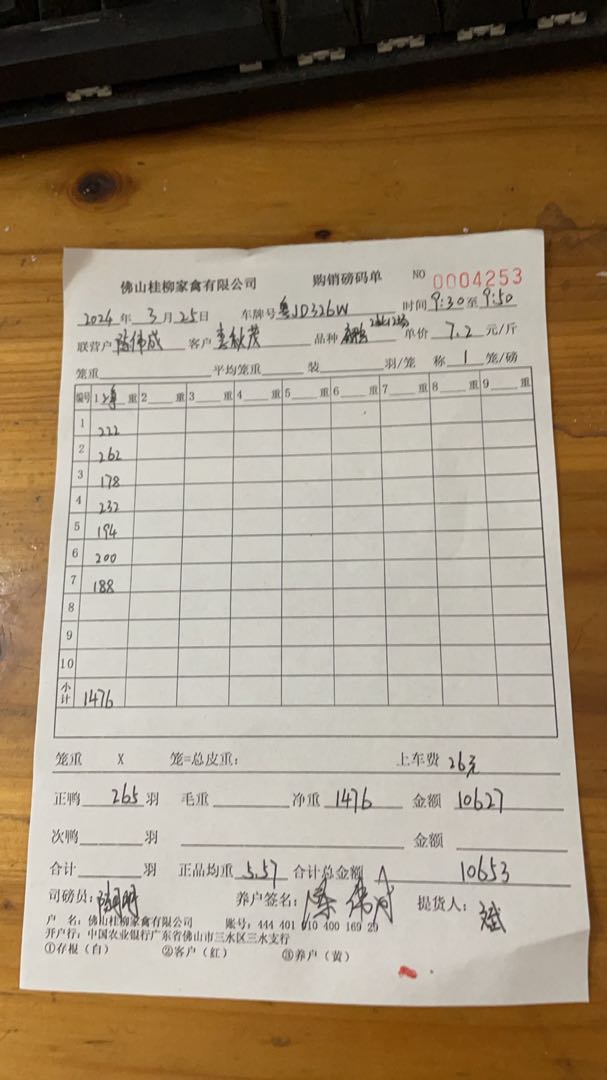 佛山桂柳家禽有限公司 购销磅码单 NO 0004253
2024年3月25日 车牌号 粤JD326W 时间 9:30 至 9:50
联营户 陈伟成 客户 袁秋茂 品种 单价 7.2 元/斤
笼重 平均笼重 装 羽/笼 称 1 笼/磅
编号 1 净 重 2 重 3 重 4 重 5 重 6 重 7 重 8 重 9 重
1 222
2 262
3 178
4 232
5 194
6 200
7 188
8
9
10
小计 1476
笼重 X 笼=总皮重: 上车费 26元
正鸭 265 羽 毛重 净重 1476 金额 10627
次鸭 羽 金额
合计 羽 正品均重 5.57 合计总金额 10653
司磅员: 养户签名: 提货人: 斌
户 名: 佛山桂柳家禽有限公司 账号: 444 401 010 400 169 29
开户行: 中国农业银行广东省佛山市三水区三水支行
①存根(白) ②客户(红) ③养户(黄)